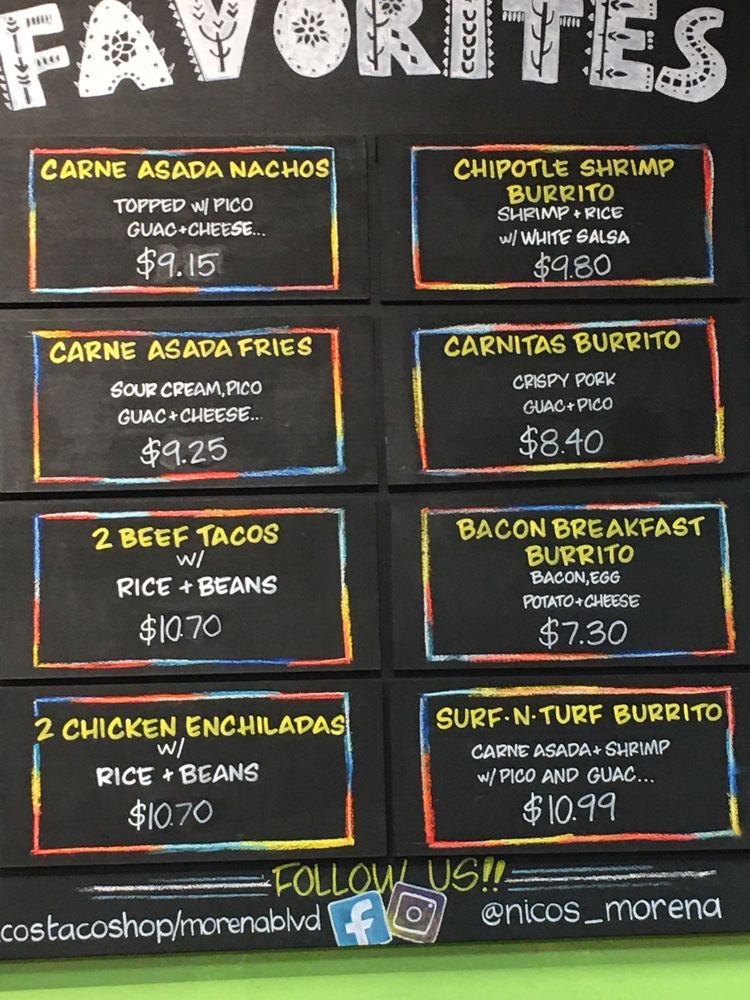 FAVORITES
CARNE ASADA NACHOS
TOPPED W/ PICO
GUAC+CHEESE...
$9.15
CHIPOTLE SHRIMP
BURRITO
SHRIMP + RICE
W/ WHITE SALSA
$9.80
CARNE ASADA FRIES
SOUR CREAM, PICO
GUAC+CHEESE...
$9.25
CARNITAS BURRITO
CRISPY PORK
GUAC+PICO
$8.40
2 BEEF TACOS
W/
RICE + BEANS
$10.70
BACON BREAKFAST
BURRITO
BACON, EGG
POTATO+CHEESE
$7.30
2 CHICKEN ENCHILADAS
W/
RICE + BEANS
$10.70
SURF·N·TURF BURRITO
CARNE ASADA + SHRIMP
W/ PICO AND GUAC...
$10.99
FOLLOW US!!
costacoshop/morenablvd f @nicos_morena